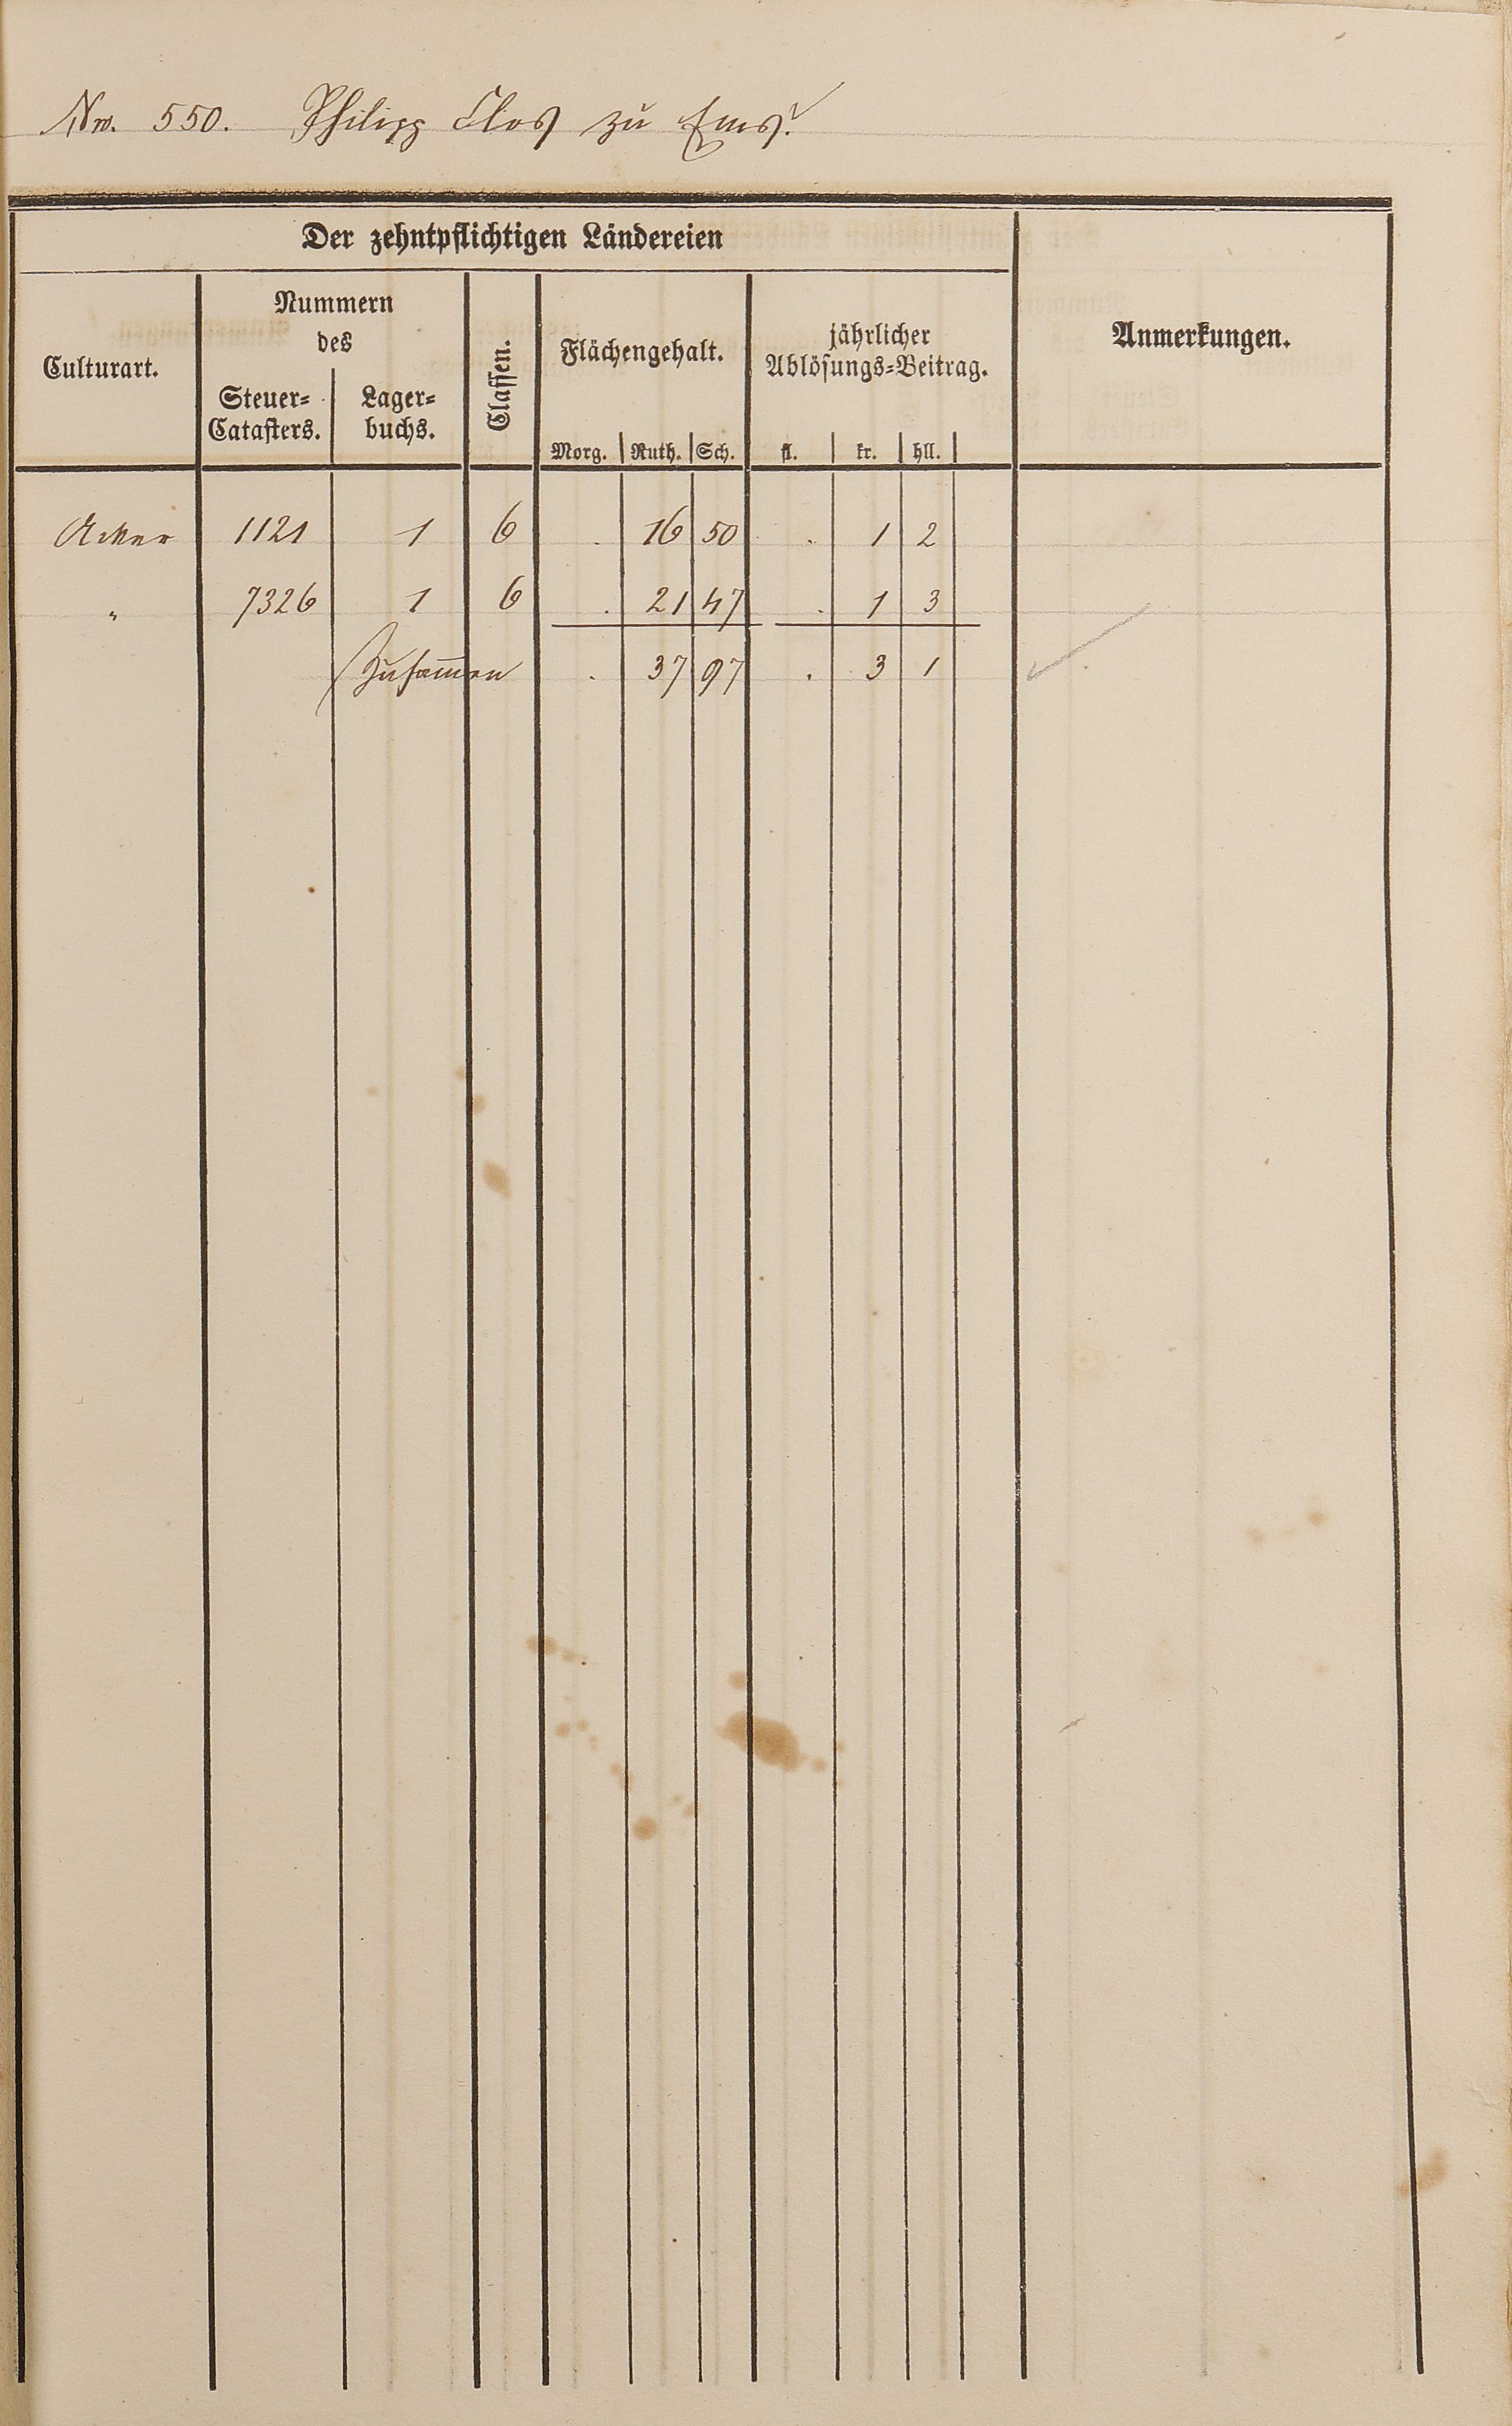 Nro. 550. Philipp Clos zu Ems.
Der zehntpflichtigen Ländereien
Culturart.
Nummern
des
Steuer=
Catasters.
Lager=
buchs.
Classen.
Flächengehalt.
Morg. Ruth. Sch.
jährlicher
Ablösungs=Beitrag.
fl. kr. hll.
Anmerkungen.
Acker 1121 1 6 . 16 50 . 1 2
" 7326 1 6 . 21 47 . 1 3
Zusam̅en . 37 97 . 3 1